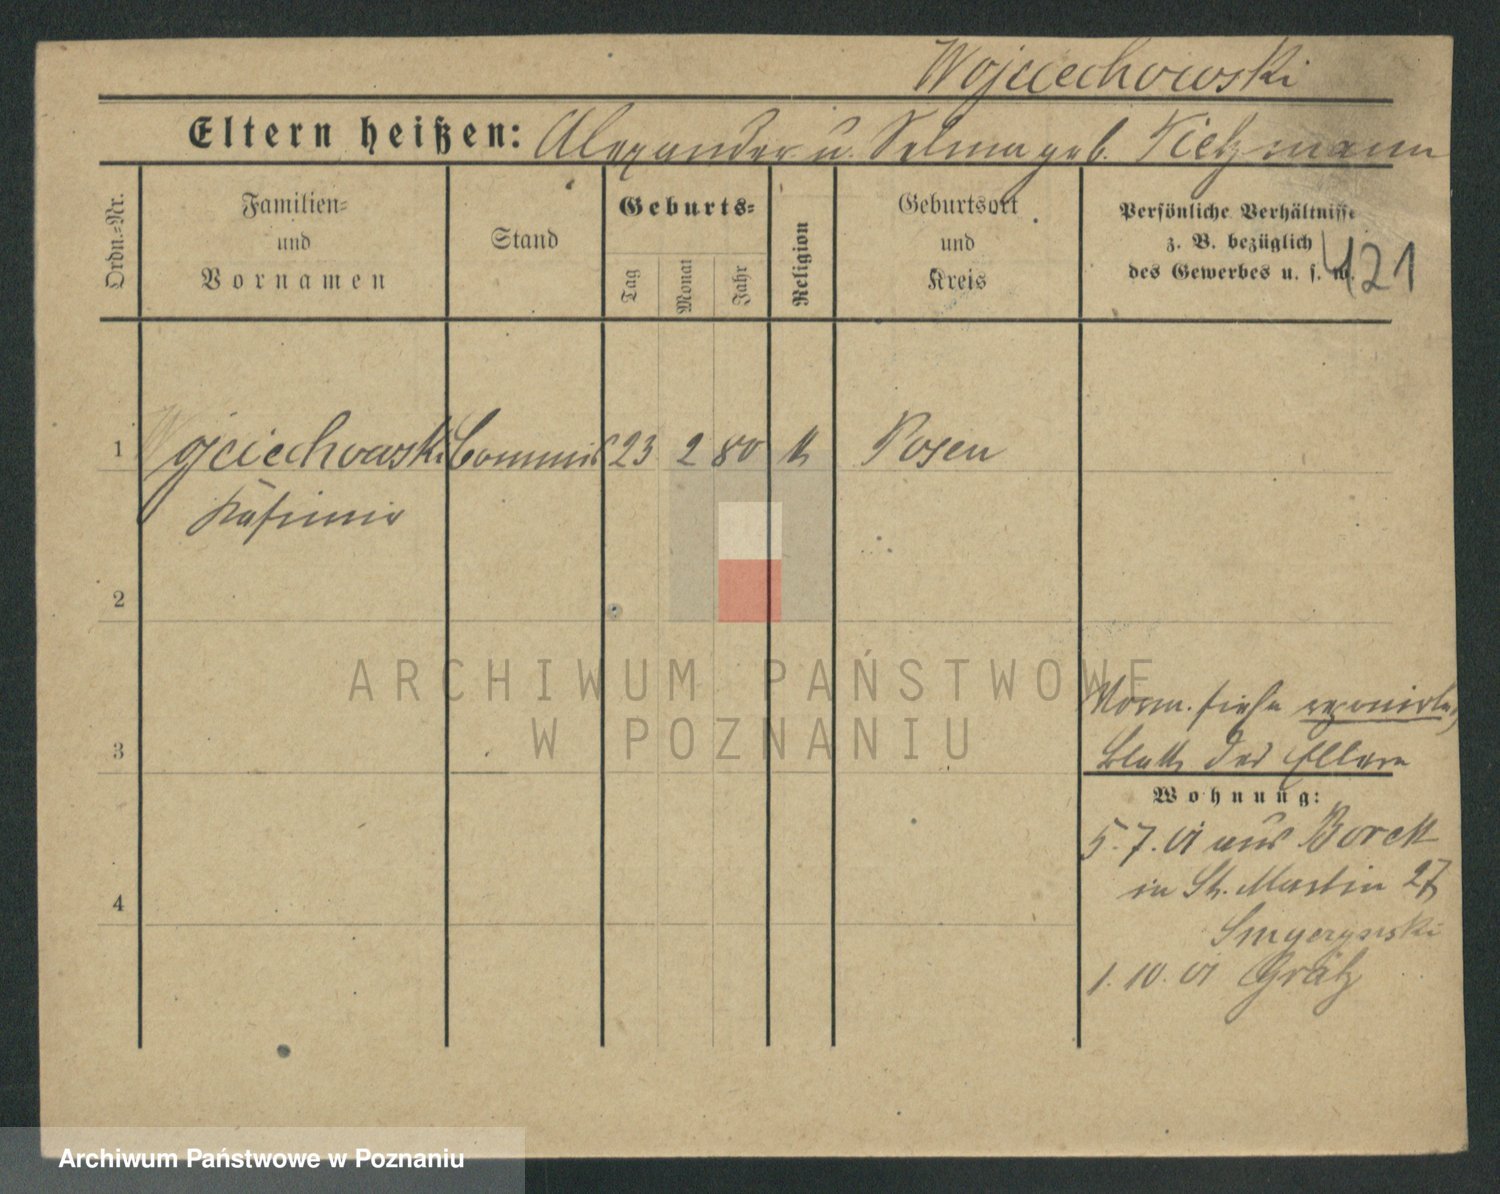 Wojciechowski
Eltern heißen: Alexander u. Selma geb. Tietzmann
Ordn.=Nr.
Familien=
und
Vornamen
Stand
Geburts=
Tag
Monat
Jahr
Religion
Geburtsort
und
Kreis
Persönliche Verhältnisse
z. B. bezüglich
des Gewerbes u. s. w.
421
1 Wojciechowski Commis 23 2 80 k Posen
Kasimir
2
3
4
Vorm. siehe
Blatt der Eltern
Wohnung:
5.7.01 aus Borek
in St. Martin 27
1.10.01 Grätz
ARCHIWUM PAŃSTWOWE
W POZNANIU
Archiwum Państwowe w Poznaniu